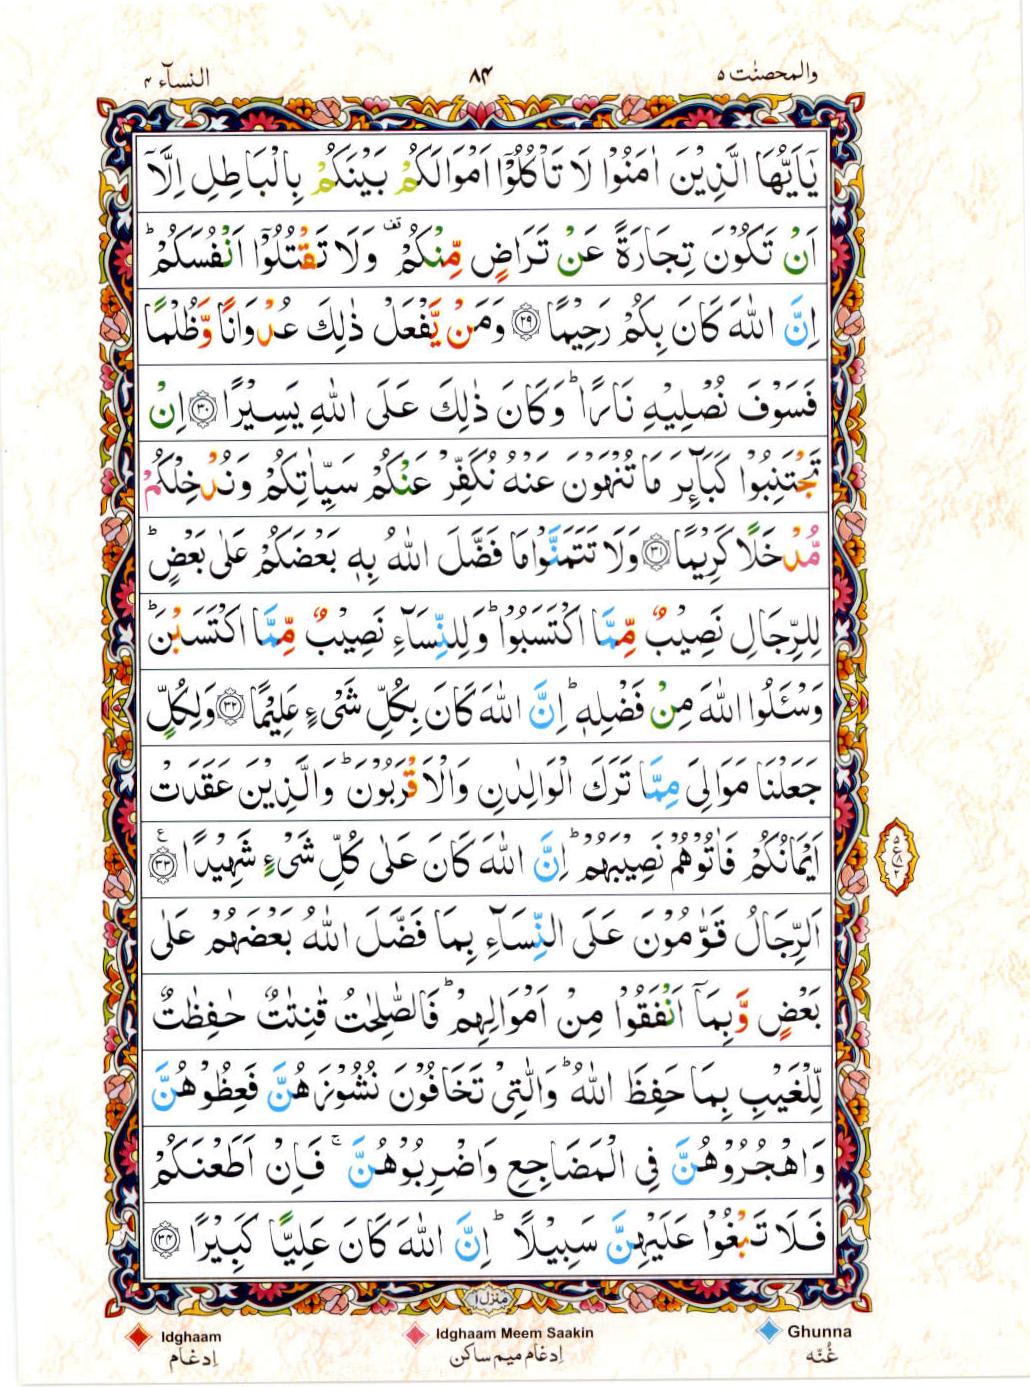 والمحصنٰت ٥
٨٤
النسآء ٤
يٰۤاَيُّهَا الَّذِيْنَ اٰمَنُوْا لَا تَاْكُلُوْۤا اَمْوَالَكُمْ بَيْنَكُمْ بِالْبَاطِلِ اِلَّاۤ
اَنْ تَكُوْنَ تِجَارَةً عَنْ تَرَاضٍ مِّنْكُمْ ۫ وَلَا تَقْتُلُوْۤا اَنْفُسَكُمْ ؕ
اِنَّ اللّٰهَ كَانَ بِكُمْ رَحِيْمًا ﴿٢٩﴾ وَمَنْ يَّفْعَلْ ذٰلِكَ عُدْوَانًا وَّظُلْمًا
فَسَوْفَ نُصْلِيْهِ نَارًا ؕ وَكَانَ ذٰلِكَ عَلَى اللّٰهِ يَسِيْرًا ﴿٣٠﴾ اِنْ
تَجْتَنِبُوْا كَبَآئِرَ مَا تُنْهَوْنَ عَنْهُ نُكَفِّرْ عَنْكُمْ سَيِّاٰتِكُمْ وَنُدْخِلْكُمْ
مُّدْخَلًا كَرِيْمًا ﴿٣١﴾ وَلَا تَتَمَنَّوْا مَا فَضَّلَ اللّٰهُ بِهٖ بَعْضَكُمْ عَلٰى بَعْضٍ ؕ
لِلرِّجَالِ نَصِيْبٌ مِّمَّا اكْتَسَبُوْا ؕ وَلِلنِّسَآءِ نَصِيْبٌ مِّمَّا اكْتَسَبْنَ ؕ
وَسْـَٔلُوا اللّٰهَ مِنْ فَضْلِهٖ ؕ اِنَّ اللّٰهَ كَانَ بِكُلِّ شَىْءٍ عَلِيْمًا ﴿٣٢﴾ وَلِكُلٍّ
جَعَلْنَا مَوَالِىَ مِمَّا تَرَكَ الْوَالِدٰنِ وَالْاَقْرَبُوْنَ ؕ وَالَّذِيْنَ عَقَدَتْ
اَيْمَانُكُمْ فَاٰتُوْهُمْ نَصِيْبَهُمْ ؕ اِنَّ اللّٰهَ كَانَ عَلٰى كُلِّ شَىْءٍ شَهِيْدًا ﴿٣٣﴾ ع
٥
ع ٨
٢
اَلرِّجَالُ قَوّٰمُوْنَ عَلَى النِّسَآءِ بِمَا فَضَّلَ اللّٰهُ بَعْضَهُمْ عَلٰى
بَعْضٍ وَّبِمَاۤ اَنْفَقُوْا مِنْ اَمْوَالِهِمْ ؕ فَالصّٰلِحٰتُ قٰنِتٰتٌ حٰفِظٰتٌ
لِّلْغَيْبِ بِمَا حَفِظَ اللّٰهُ ؕ وَالّٰتِىْ تَخَافُوْنَ نُشُوْزَهُنَّ فَعِظُوْهُنَّ
وَاهْجُرُوْهُنَّ فِى الْمَضَاجِعِ وَاضْرِبُوْهُنَّ ۚ فَاِنْ اَطَعْنَكُمْ
فَلَا تَبْغُوْا عَلَيْهِنَّ سَبِيْلًا ؕ اِنَّ اللّٰهَ كَانَ عَلِيًّا كَبِيْرًا ﴿٣٤﴾
منزل ١
Idghaam
اِدغام
Idghaam Meem Saakin
اِدغام میم ساکن
Ghunna
غُنّه